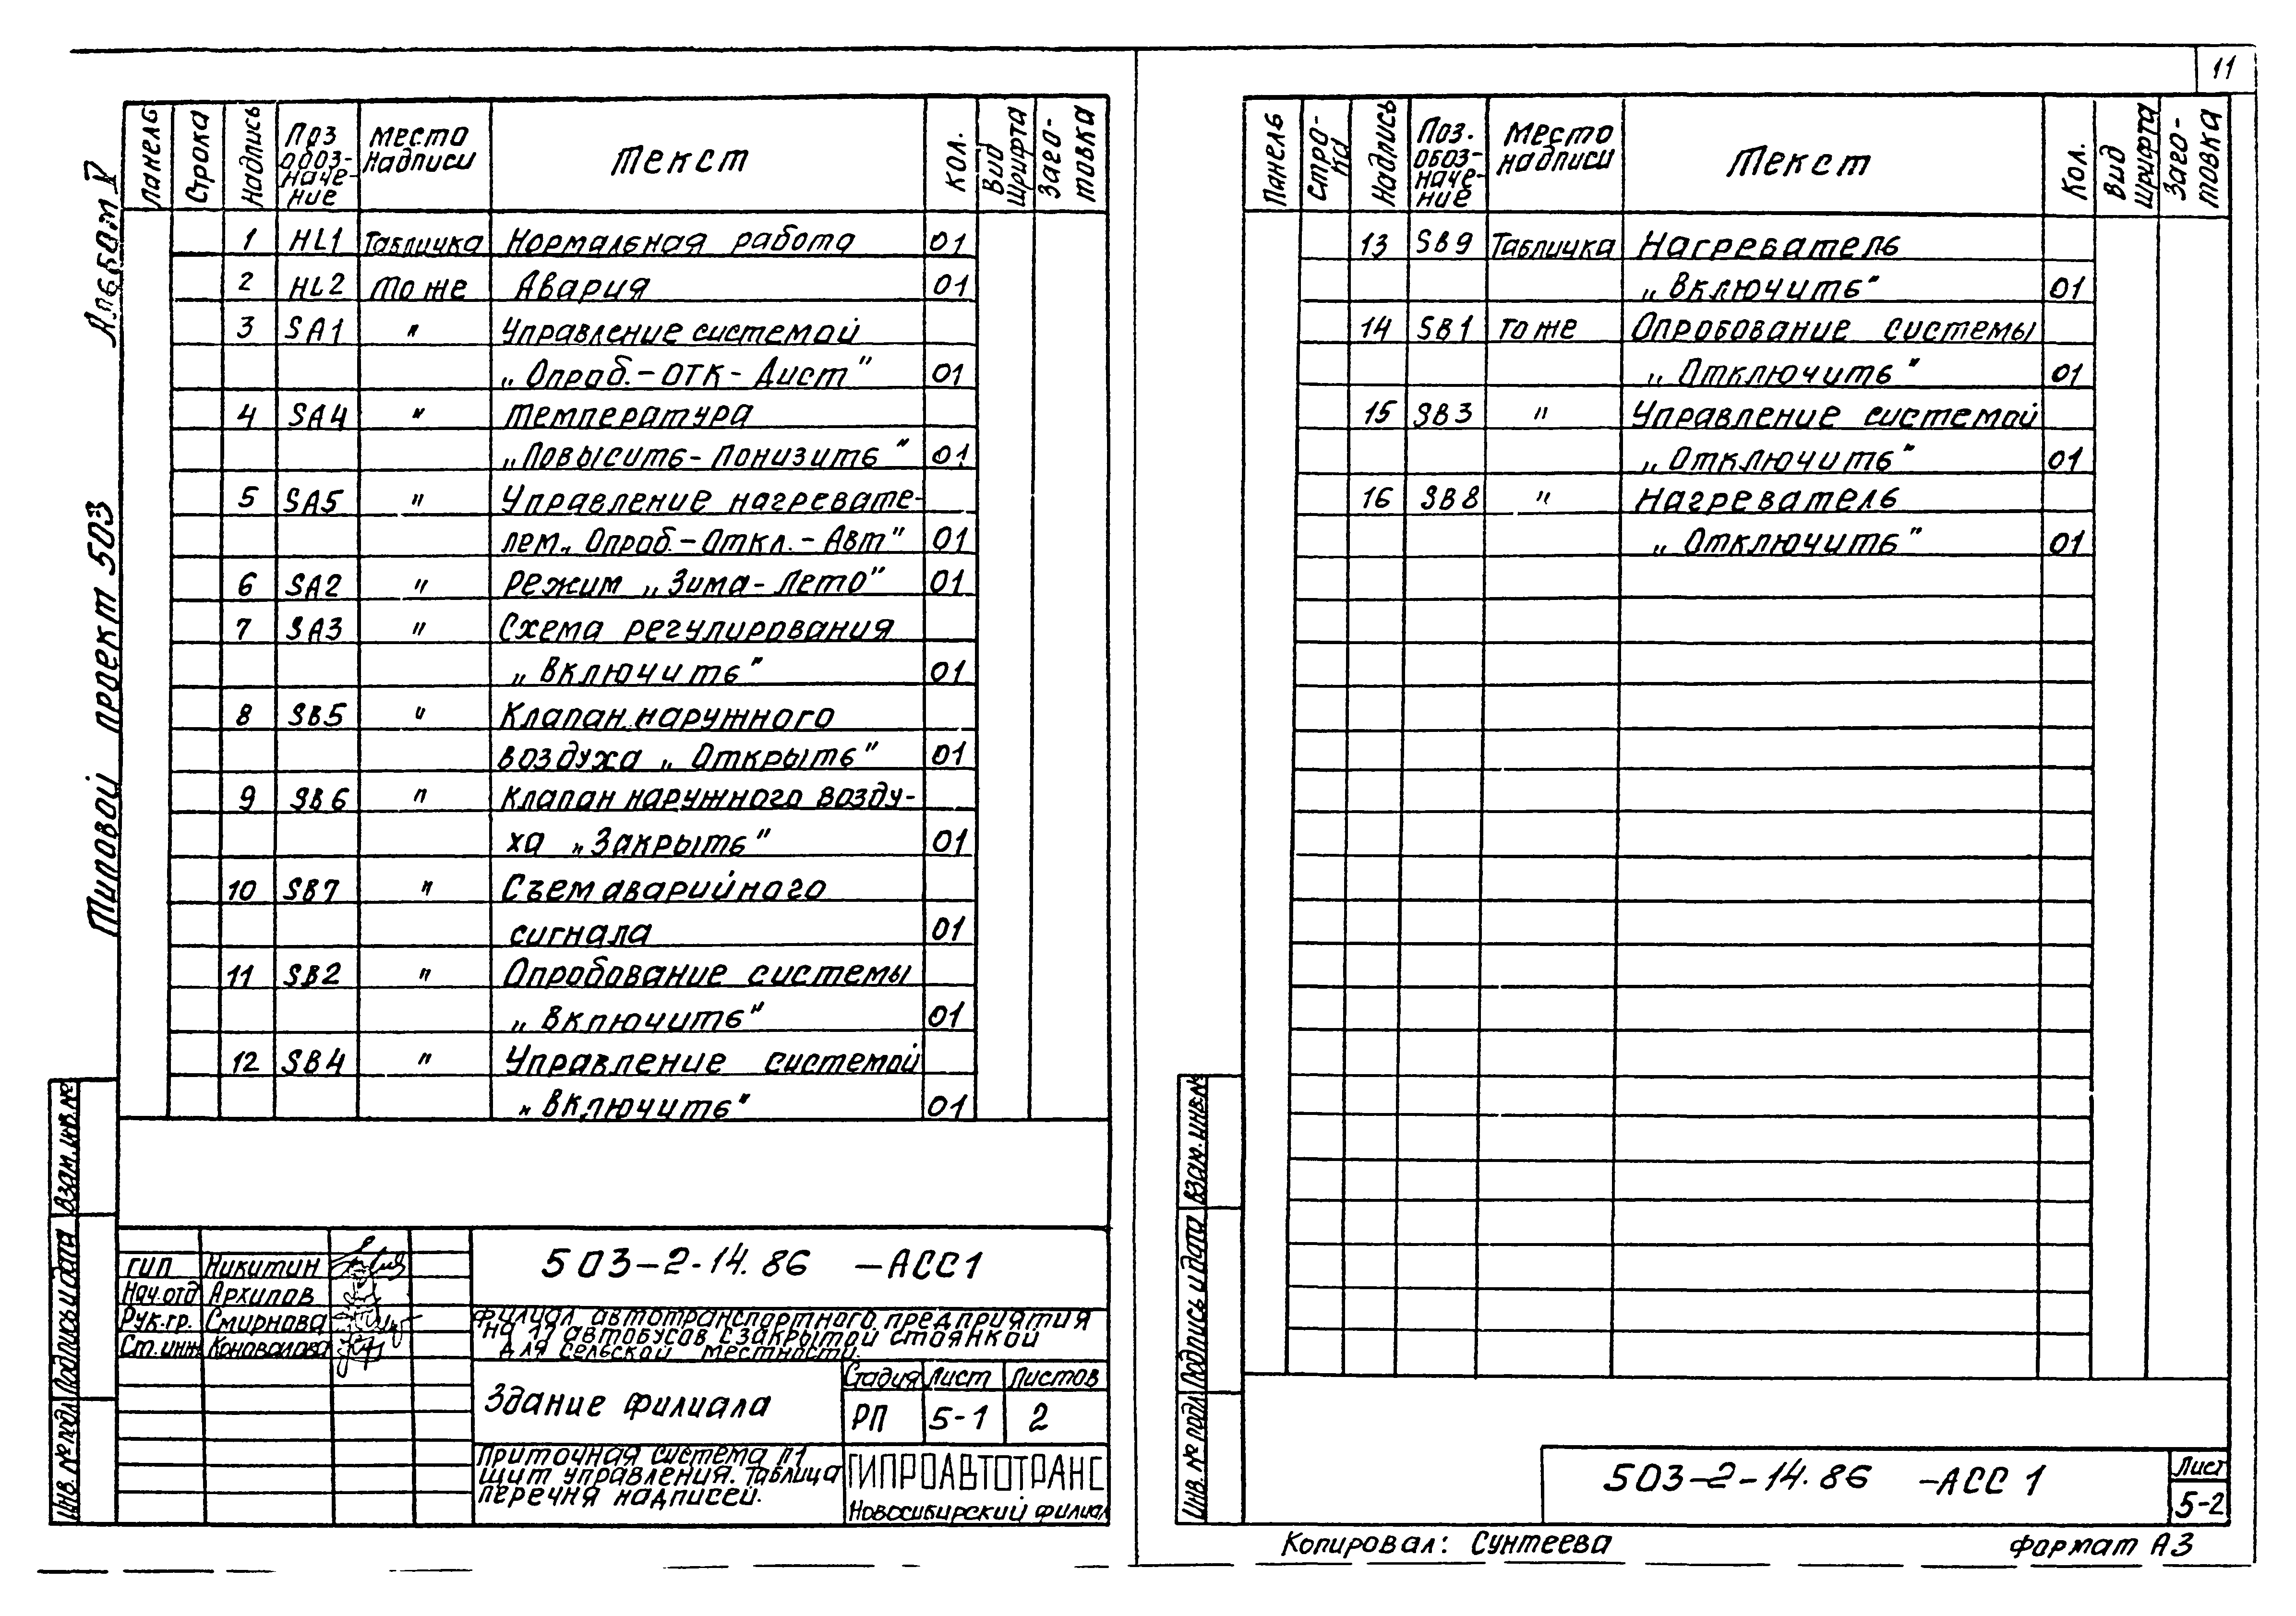 11
Альбом V
Типовой проект 503
Панель Строка Надпись Поз обоз-наче-ние Место надписи Текст Кол. Вид шрифта Заго-товка
1 HL1 Табличка Нормальная работа 01
2 HL2 То же Авария 01
3 SA1 " Управление системой
„Опроб.-отк-Дист" 01
4 SA4 " Температура
„Повысить-Понизить" 01
5 SA5 " Управление нагревате-
лем „Опроб.-Откл.-Авт" 01
6 SA2 " Режим „Зима-Лето" 01
7 SA3 " Схема регулирования
„Включить" 01
8 SB5 " Клапан наружного
воздуха „Открыть" 01
9 SB6 " Клапан наружного возду-
ха „Закрыть" 01
10 SB7 " Съем аварийного
сигнала 01
11 SB2 " Опробование системы
„Включить" 01
12 SB4 " Управление системой
„Включить" 01
Взам. инв.№
Подпись и дата
Инв. № подл
ГИП Никитин
Нач.отд Архипов
Рук.гр. Смирнова
Ст.инж Коновалова
503-2-14.86 -АСС1
Филиал автотранспортного предприятия
на 17 автобусов с закрытой стоянкой
для сельской местности.
Здание филиала
Стадия Лист Листов
РП 5-1 2
Приточная система П1
Щит управления. Таблица
перечня надписей.
ГИПРОАВТОТРАНС
Новосибирский филиал
Панель Стро-ка Надпись Поз. обоз-наче-ние Место надписи Текст Кол. Вид шрифта Заго-товка
13 SB9 Табличка Нагреватель
„Включить" 01
14 SB1 То же Опробование системы
„Отключить" 01
15 SB3 " Управление системой
„Отключить" 01
16 SB8 " Нагреватель
„Отключить" 01
Взам. инв.№
Подпись и дата
Инв. № подл
503-2-14.86 -АСС 1
Лист
5-2
Копировал: Сунтеева
Формат А3